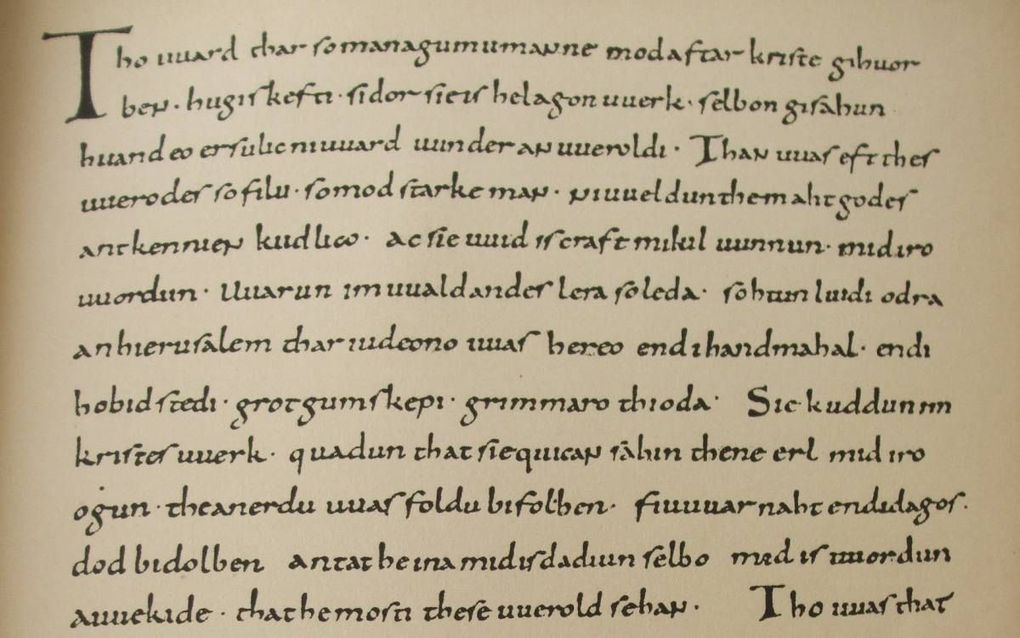 Tho uuard thar so managumu manne mod aftar kriste gihuor
ben · hugiskefti · sidor sie is helagon uuerk · selbon gisahun
huand eo er sulic ni uuard uunder an uueroldi · Than uuas eft thes
uuerodes so filu · so mod starke man · ni uueldun the maht godes
antkennien kudlico · ac sie uuid is craft mikil uunnun · mid iro
uuordun · Uuarun im uualdandes lera so leda · sohtun im liudi odra
an hierusalem thar iudeono uuas hereo endi handmahal · endi
hobid stedi · grot gumskepi · grimmaro thioda · Sie kuddun im
kristes uuerk · quadun that sie quican sahin thene erl mid iro
ogun · the an erdu uuas foldu bifolhen · fiuuuar naht endi dagos ·
dod bidolben antat he ina mid is dadiun selbo mid is uuordun
auuekide · that he mosti these uuerold sehan · Tho uuas that